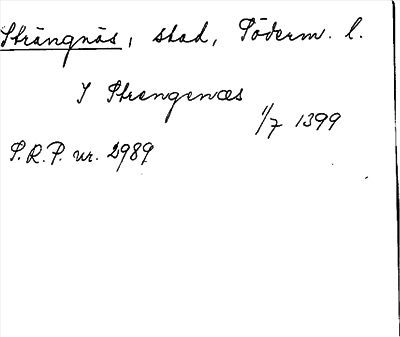 Strängnäs, stad, Söderm. l.
I Strengenæs
1/7 1399
S.R.P. nr. 2989